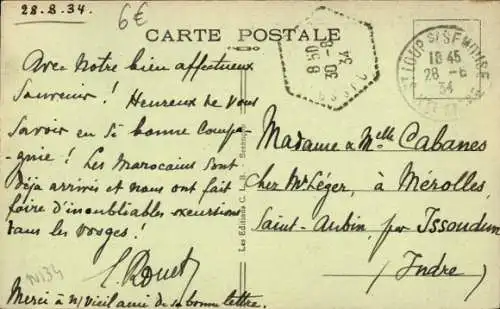 28.8.34
6€
CARTE POSTALE
Avec Notre bien affectueux
Souvenir! Heureux de Vous
Savoir en si bonne Compa-
-gnie! Les Marocains sont
déja arrivés et nous ont fait
faire d'inoubliables excursions
dans les Vosges!
Merci à n/ vieil ami de sa bonne lettre.
N134
Les Editions C. L. B. - Besançon
8 50
30 - 8
34
LOUP S/SEMOUSE
18 45
28 - 8
34
Madame & Mlle Cabanes
Chez Mr Léger, à Mérolles,
Saint-Aubin, par Issoudun
(Indre)